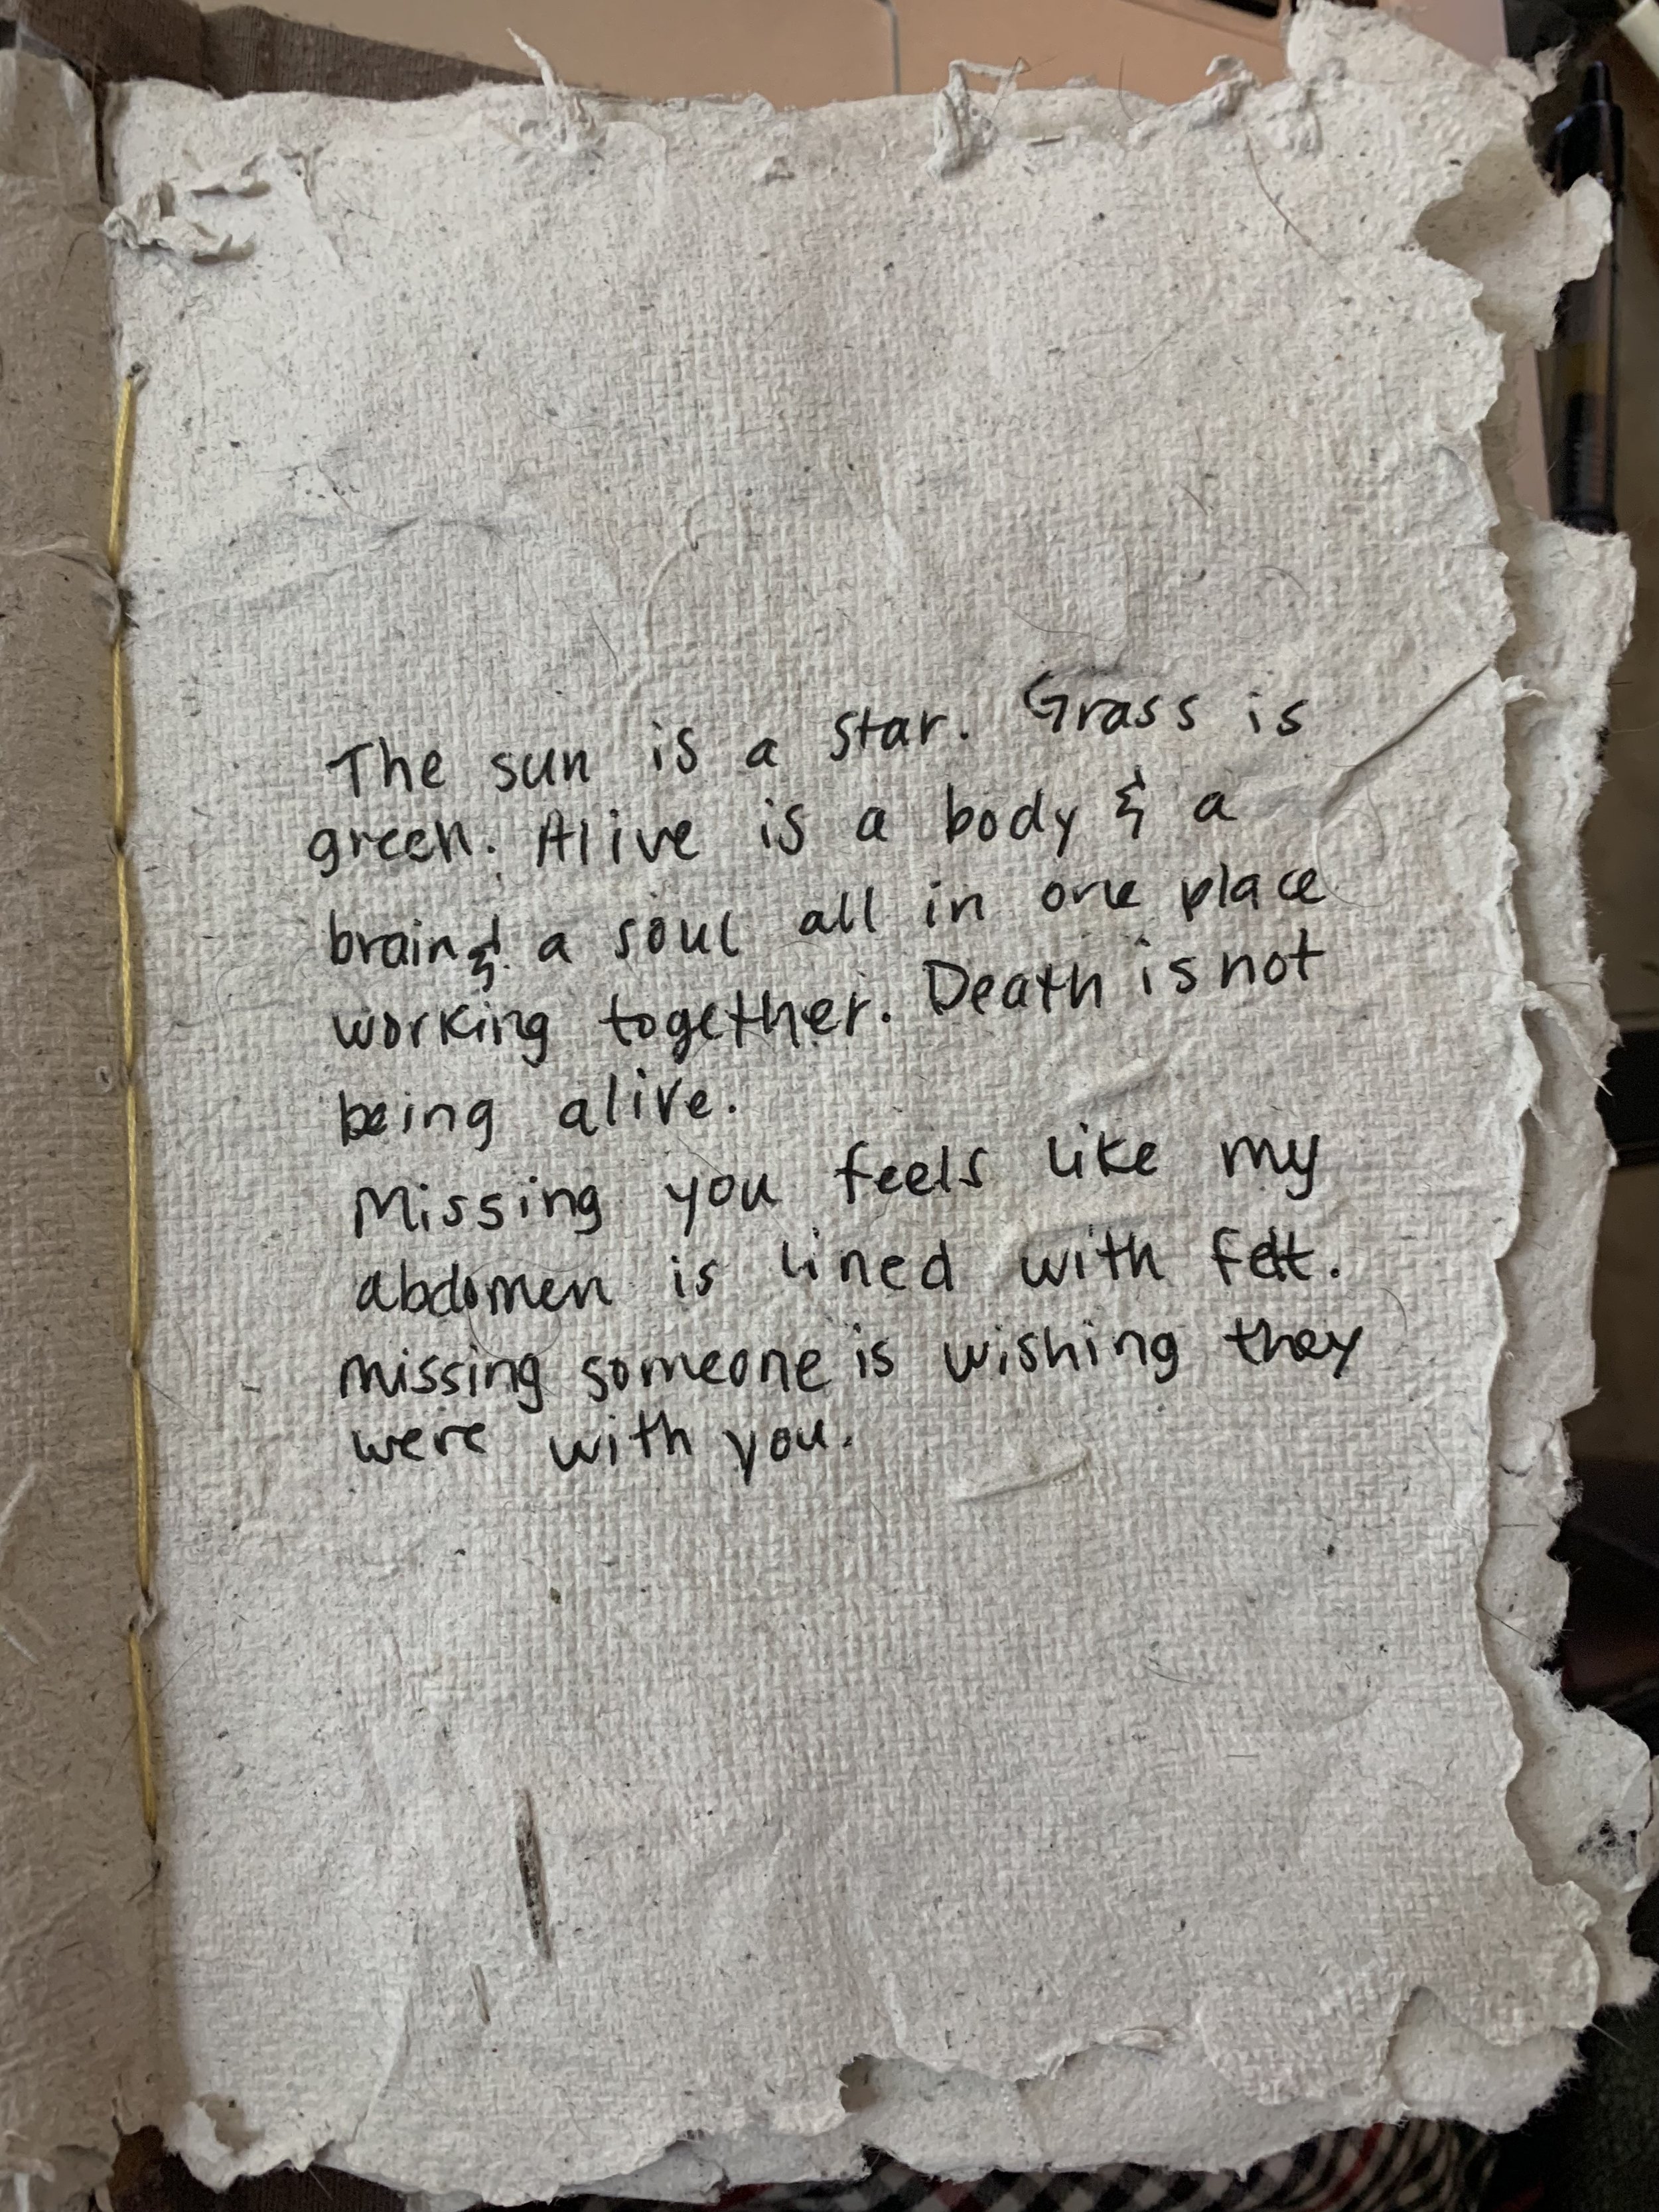 The sun is a star. Grass is
green. Alive is a body & a
brain & a soul all in one place
working together. Death is not
being alive.
Missing you feels like my
abdomen is lined with felt.
missing someone is wishing they
were with you.